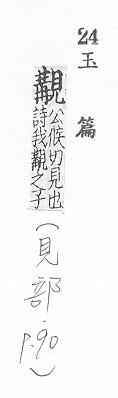 24 玉篇
覯
公候切見也
詩我覯之子
(見部.P.90)